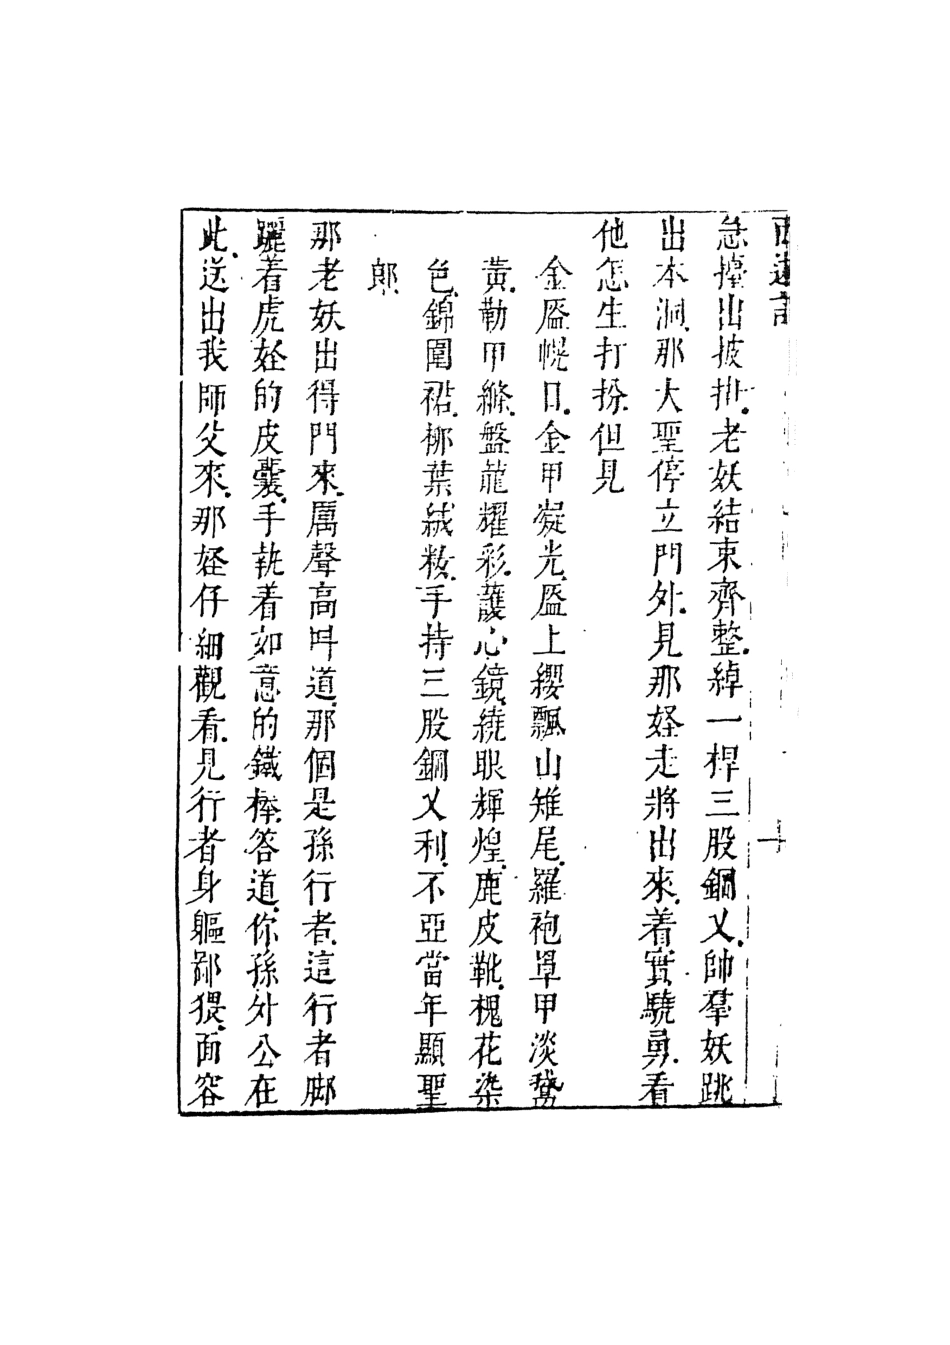 西遊記
急擡出披掛老妖結束齊整綽一桿三股鋼乂帥羣妖跳
出本洞那大聖停立門外見那妖走將出來着實驍勇看
他怎生打扮但見
金盔幌日金甲凝光盔上纓飄山雉尾羅袍罩甲淡鵞
黃勒甲縧盤龍耀彩護心鏡繞眼輝煌鹿皮靴槐花染
色錦圍裙柳葉絨粧手持三股鋼乂利不亞當年顯聖
郎
那老妖出得門來厲聲高呌道那個是孫行者這行者脚
躧着虎怪的皮囊手執着如意的鐵棒答道你孫外公在
此送出我師父來那怪仔細觀看見行者身軀鄙猥面容